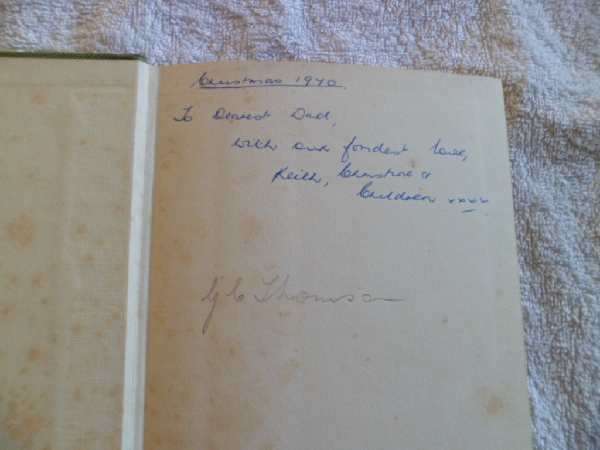 Christmas 1970.
To Dearest Dad,
With our fondest love,
Keith, Christine &
Children xxxx
G C Thomson